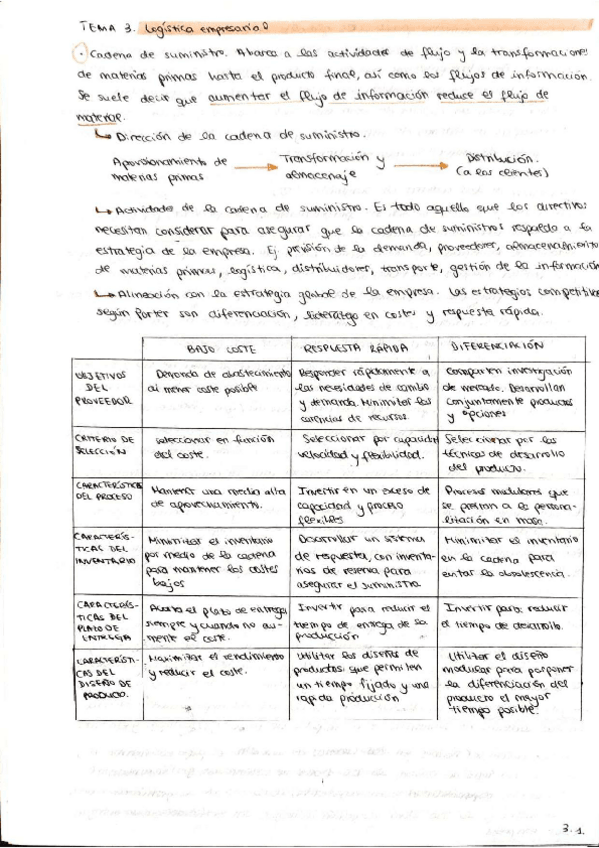 TEMA 3. Logística empresarial
· Cadena de suministro. Abarca a las actividades de flujo y la transformaciones
de materias primas hasta el producto final, así como los flujos de información.
Se suele decir que aumentar el flujo de información reduce el flujo de
material.
↳ Dirección de la cadena de suministro.
Aprovisionamiento de materias primas → Transformación y almacenaje → Distribución. (a los clientes)
↳ Actividades de la cadena de suministro. Es todo aquello que los directivos
necesitan considerar para asegurar que la cadena de suministros respalda a la
estrategia de la empresa. Ej previsión de la demanda, proveedores, almacenamiento
de materias primas, logística, distribuidores, transporte, gestión de la información
↳ Alineación con la estrategia global de la empresa. Las estrategias competitivas
según Porter son diferenciación, liderazgo en costes y respuesta rápida.
BAJO COSTE
RESPUESTA RÁPIDA
DIFERENCIACIÓN
OBJETIVOS
DEL
PROVEEDOR
Demanda de abastecimiento
al menor coste posible
Responder rápidamente a
las necesidades de cambio
y demanda. Minimizar las
carencias de recursos.
Comparten investigación
de mercado. Desarrollan
conjuntamente productos
y opciones
CRITERIO DE
SELECCIÓN
Seleccionar en función
del coste.
Seleccionar por capacidad
velocidad y flexibilidad.
Seleccionar por las
técnicas de desarrollo
del producto.
CARACTERÍSTICAS
DEL PROCESO
Mantener una media alta
de aprovechamiento.
Invertir en un exceso de
capacidad y proceso
flexibles
Procesos modulares que
se prestan a la persona-
lización en masa.
CARACTERÍS-
TICAS DEL
INVENTARIO
Minimizar el inventario
por medio de la cadena
para mantener los costes
bajos
Desarrollar un sistema
de respuesta, con inventa-
rios de reserva para
asegurar el suministro
Minimizar el inventario
en la cadena para
evitar la obsolescencia.
CARACTERÍS-
TICAS DEL
PLAZO DE
ENTREGA
Acorta el plazo de entrega
siempre y cuando no au-
mente el coste.
Invertir para reducir el
tiempo de entrega de la
producción
Invertir para reducir
el tiempo de desarrollo.
CARACTERÍSTI-
CAS DEL
DISEÑO DE
PRODUCTO.
Maximizar el rendimiento
y reducir el coste.
Utilizar los diseños de
productos que permiten
un tiempo fijado y una
rápida producción
Utilizar el diseño
modular para posponer
la diferenciación del
producto el mayor
tiempo posible.
3.1.